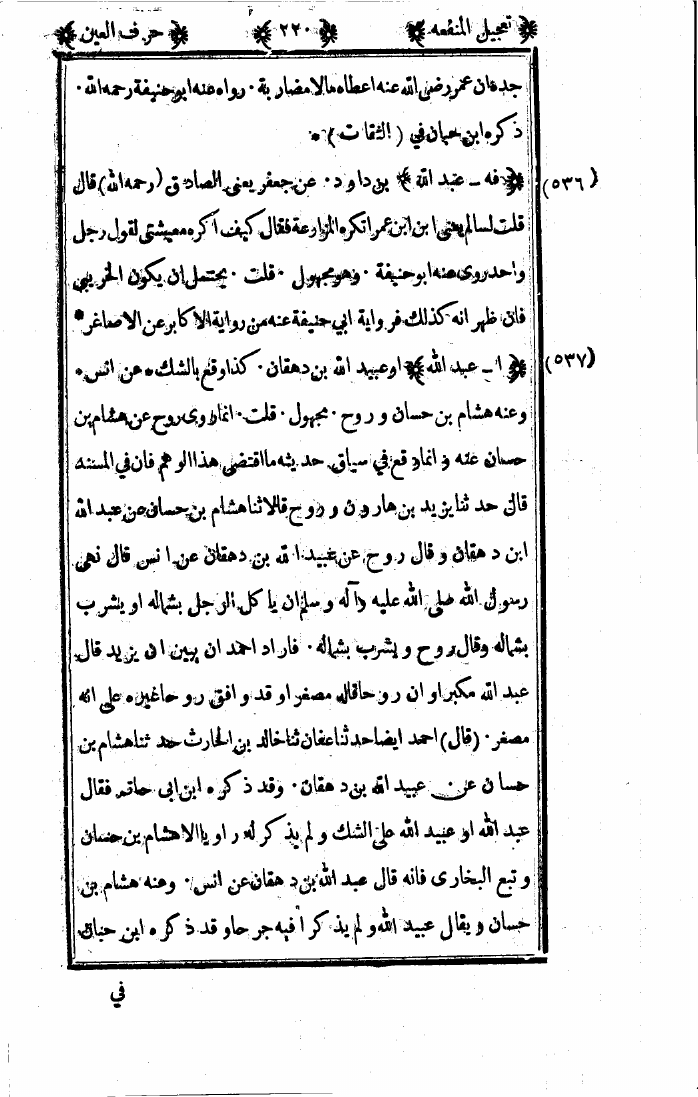 ﴿ تعجيل المنفعه ﴾ ﴿ ٢٢٠ ﴾ ﴿ حرف العين ﴾
جده ان عمر رضى الله عنه اعطاه مالا مضاربة · رواه عنه ابو حنيفة رحمه الله ·
ذكره ابن حبان في ( الثقات ) *
(٥٣٦) ﴿ فه - عبد الله ﴾ بن داود · عن جعفر يعنى الصادق (رحمه الله) قال
قلت لسالم يعنى ابن ابن عمر اتكره المزارعة فقال كيف اكره معيشتى لقول رجل
واحد روى عنه ابو حنيفة · وهو مجهول · قلت · يحتمل ان يكون الخريبي
فان ظهر انه كذلك فرواية ابي حنيفة عنه من رواية الاكابر عن الاصاغر *
(٥٣٧) ﴿ ا - عبد الله ﴾ او عبيد الله بن دهقان · كذا وقع بالشك · عن انس ·
وعنه هشام بن حسان و روح · مجهول · قلت · انما روى روح عن هشام بن
حسان عنه و انما وقع في سياق حديثه ما اقتضى هذا الوهم فان في المسند
قال حد ثنا يزيد بن هارون و روح قالا ثنا هشام بن حسان عن عبد الله
ابن د هقان و قال روح عن عبيد الله بن دهقان عن انس قال نهى
رسول الله صلى الله عليه وآله و سلم ان ياكل الرجل بشماله او يشرب
بشماله وقال روح و يشرب بشماله · فاراد احمد ان يبين ان يزيد قال
عبد الله مكبرا و ان روحا قال مصغرا و قد وافق روحا غيره على انه
مصغر · (قال) احمد ايضا حد ثنا عفان ثنا خالد بن الحارث حد ثنا هشام بن
حسان عن عبيد الله بن دهقان · وقد ذكره ابن ابى حاتم فقال
عبد الله او عبيد الله على الشك و لم يذكر له راويا الا هشام بن حسان
و تبع البخارى فانه قال عبد الله بن دهقان عن انس · وعنه هشام بن
حسان و يقال عبيد الله و لم يذكرا فيه جرحا و قد ذكره ابن حبان
في